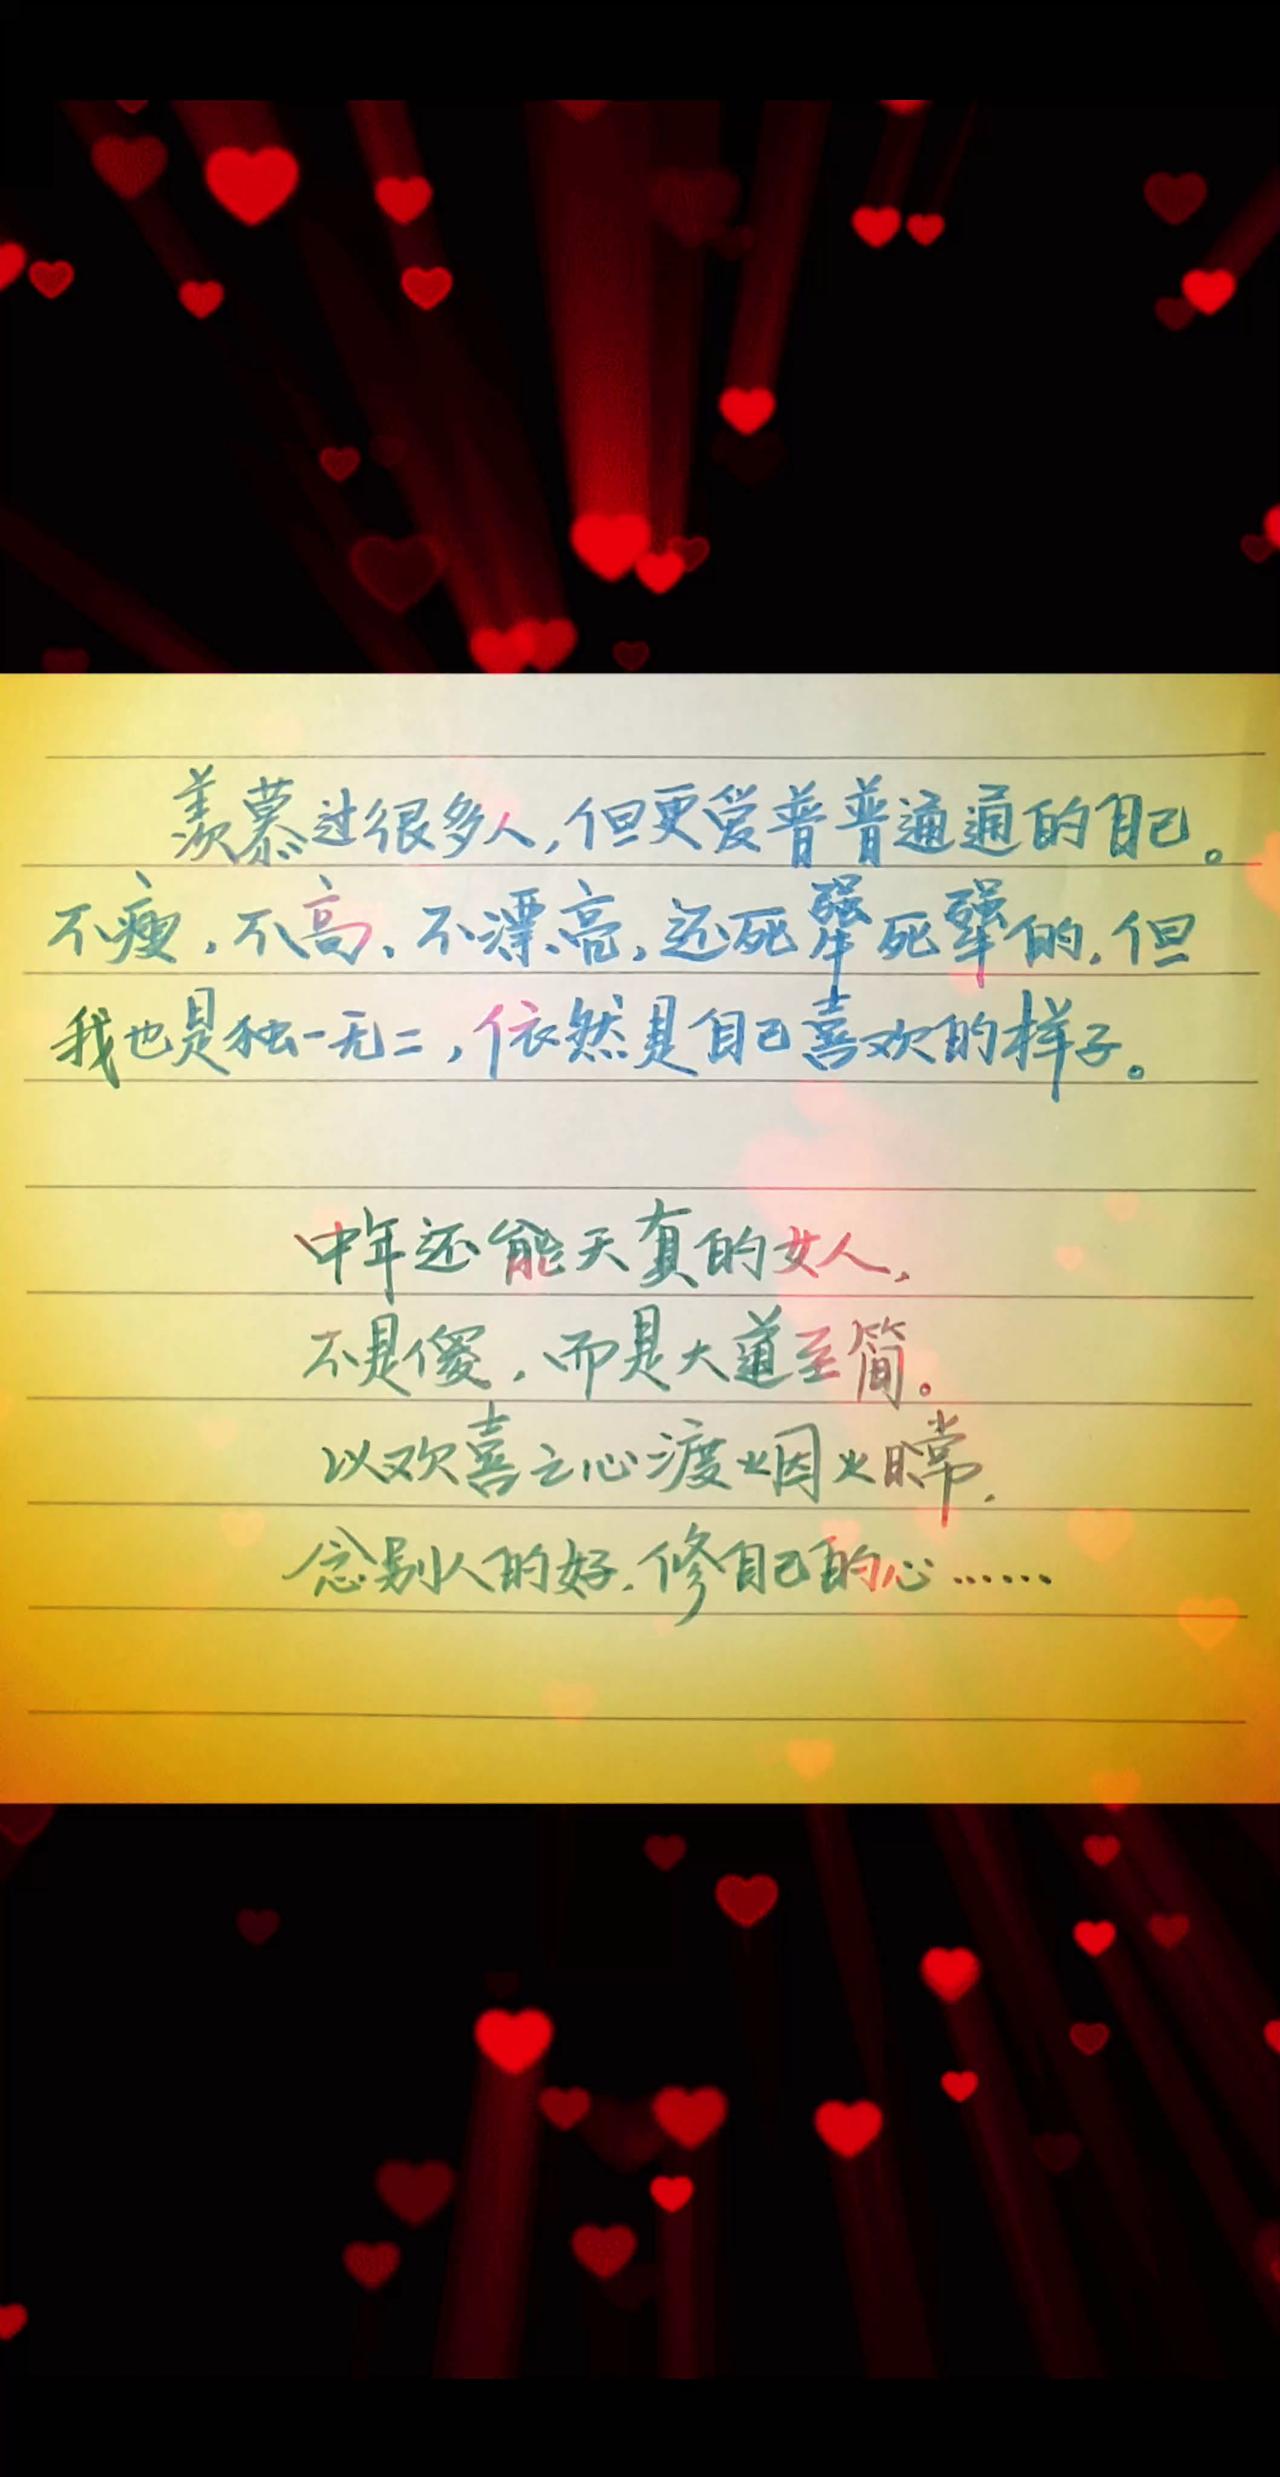 羡慕过很多人,但更爱普普通通的自己。
不瘦,不高、不漂亮,还死犟死犟的,但
我也是独一无二,依然是自己喜欢的样子。
中年还能天真的女人,
不是傻,而是大道至简。
以欢喜之心渡烟火日常,
念别人的好,修自己的心……